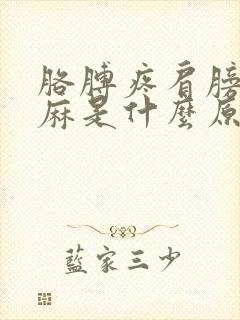 胳膊疼肩膀
麻是什麼原
藍家三少